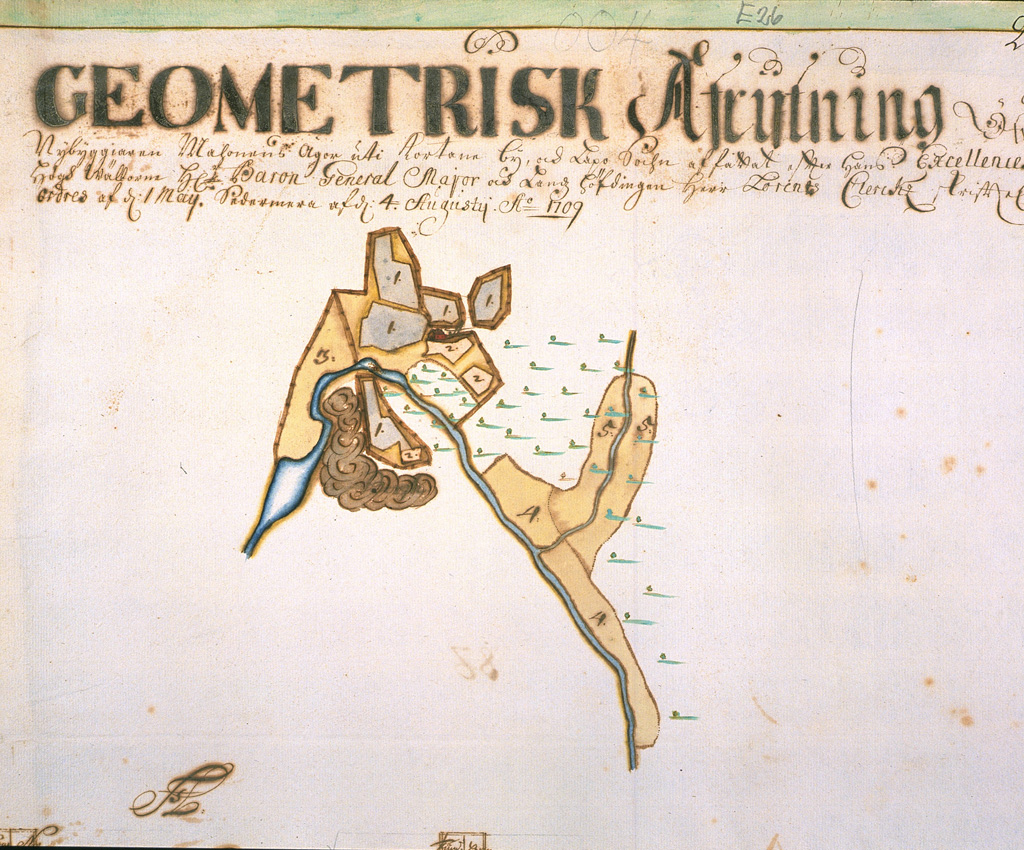 E26
004
GEOMETRISK Afrijtning
Nybyggiaren Ägor uti Kortane By, och Lapo Sochn affattat effter Hans Excellences
Högd Wälborne H: Baron General Major och Land Höfdingen Herr Lorentz Clerckz
ordres af d: 1 May. Sedermera af d: 4. Augustij. A:o 1709
1.
1.
1.
1.
3.
2.
2.
1.
2.
5.
5.
4.
4.